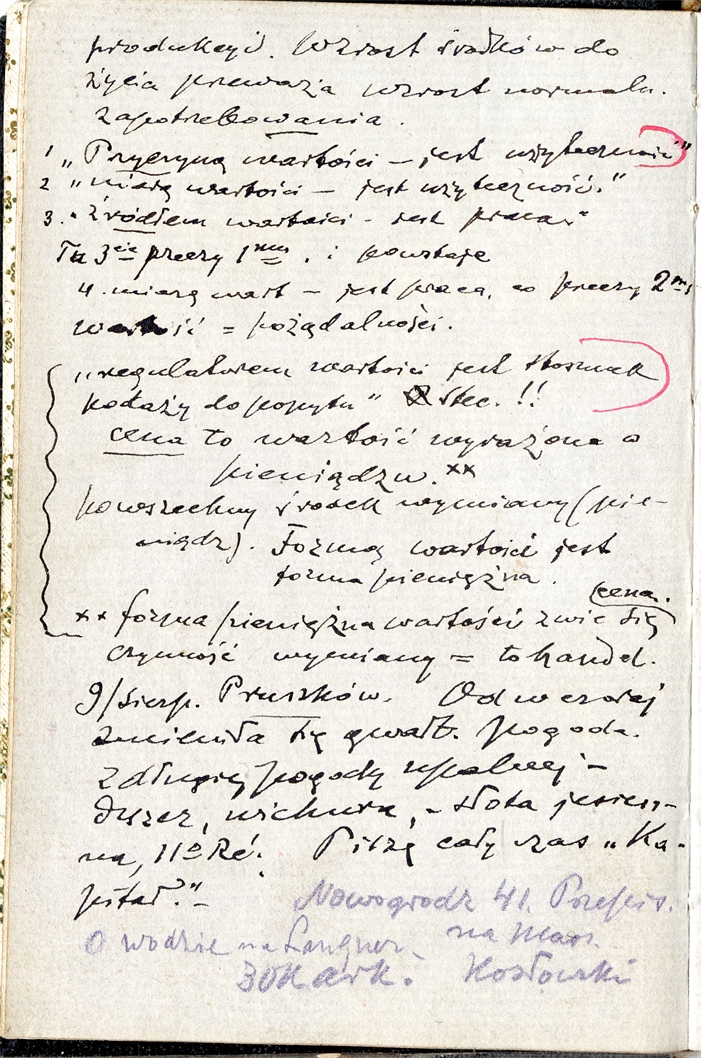 produkcyj. Wzrost środków do
życia przeważa wzrost normaln.
zapotrzebowania.
1 „Przyczyną wartości – jest użyteczność”
2 „miarą wartości – jest użyteczność.”
3. „Źródłem wartości - jest praca”
Tu 3cie przeczy 1mu. i powstaje
4. miarą wart – jest praca, co przeczy 2mu
wartość = pożądalności.
„regulatorem wartości jest stosunek
podaży do popytu” Stec. !!
cena to wartość wyrażona w
pieniądzu. xx
powszechny środek wymiany (pie-
niądz). Formą wartości jest
forma pieniężna.
cena.
xx forma pieniężna wartości zwie się
czynność wymiany = to handel.
9/Sierp. Pruszków. Od wczoraj
zmieniła się gwałt. pogoda.
z długiej pogody upalnej –
deszcz, wichura, – słota jesien-
na, 11o Ré. Piszę cały czas „Ka-
pitał.” –
Nowogrodz 41. Przepis.
O wodzie na na Masz.
30 Mark. Kosłowski